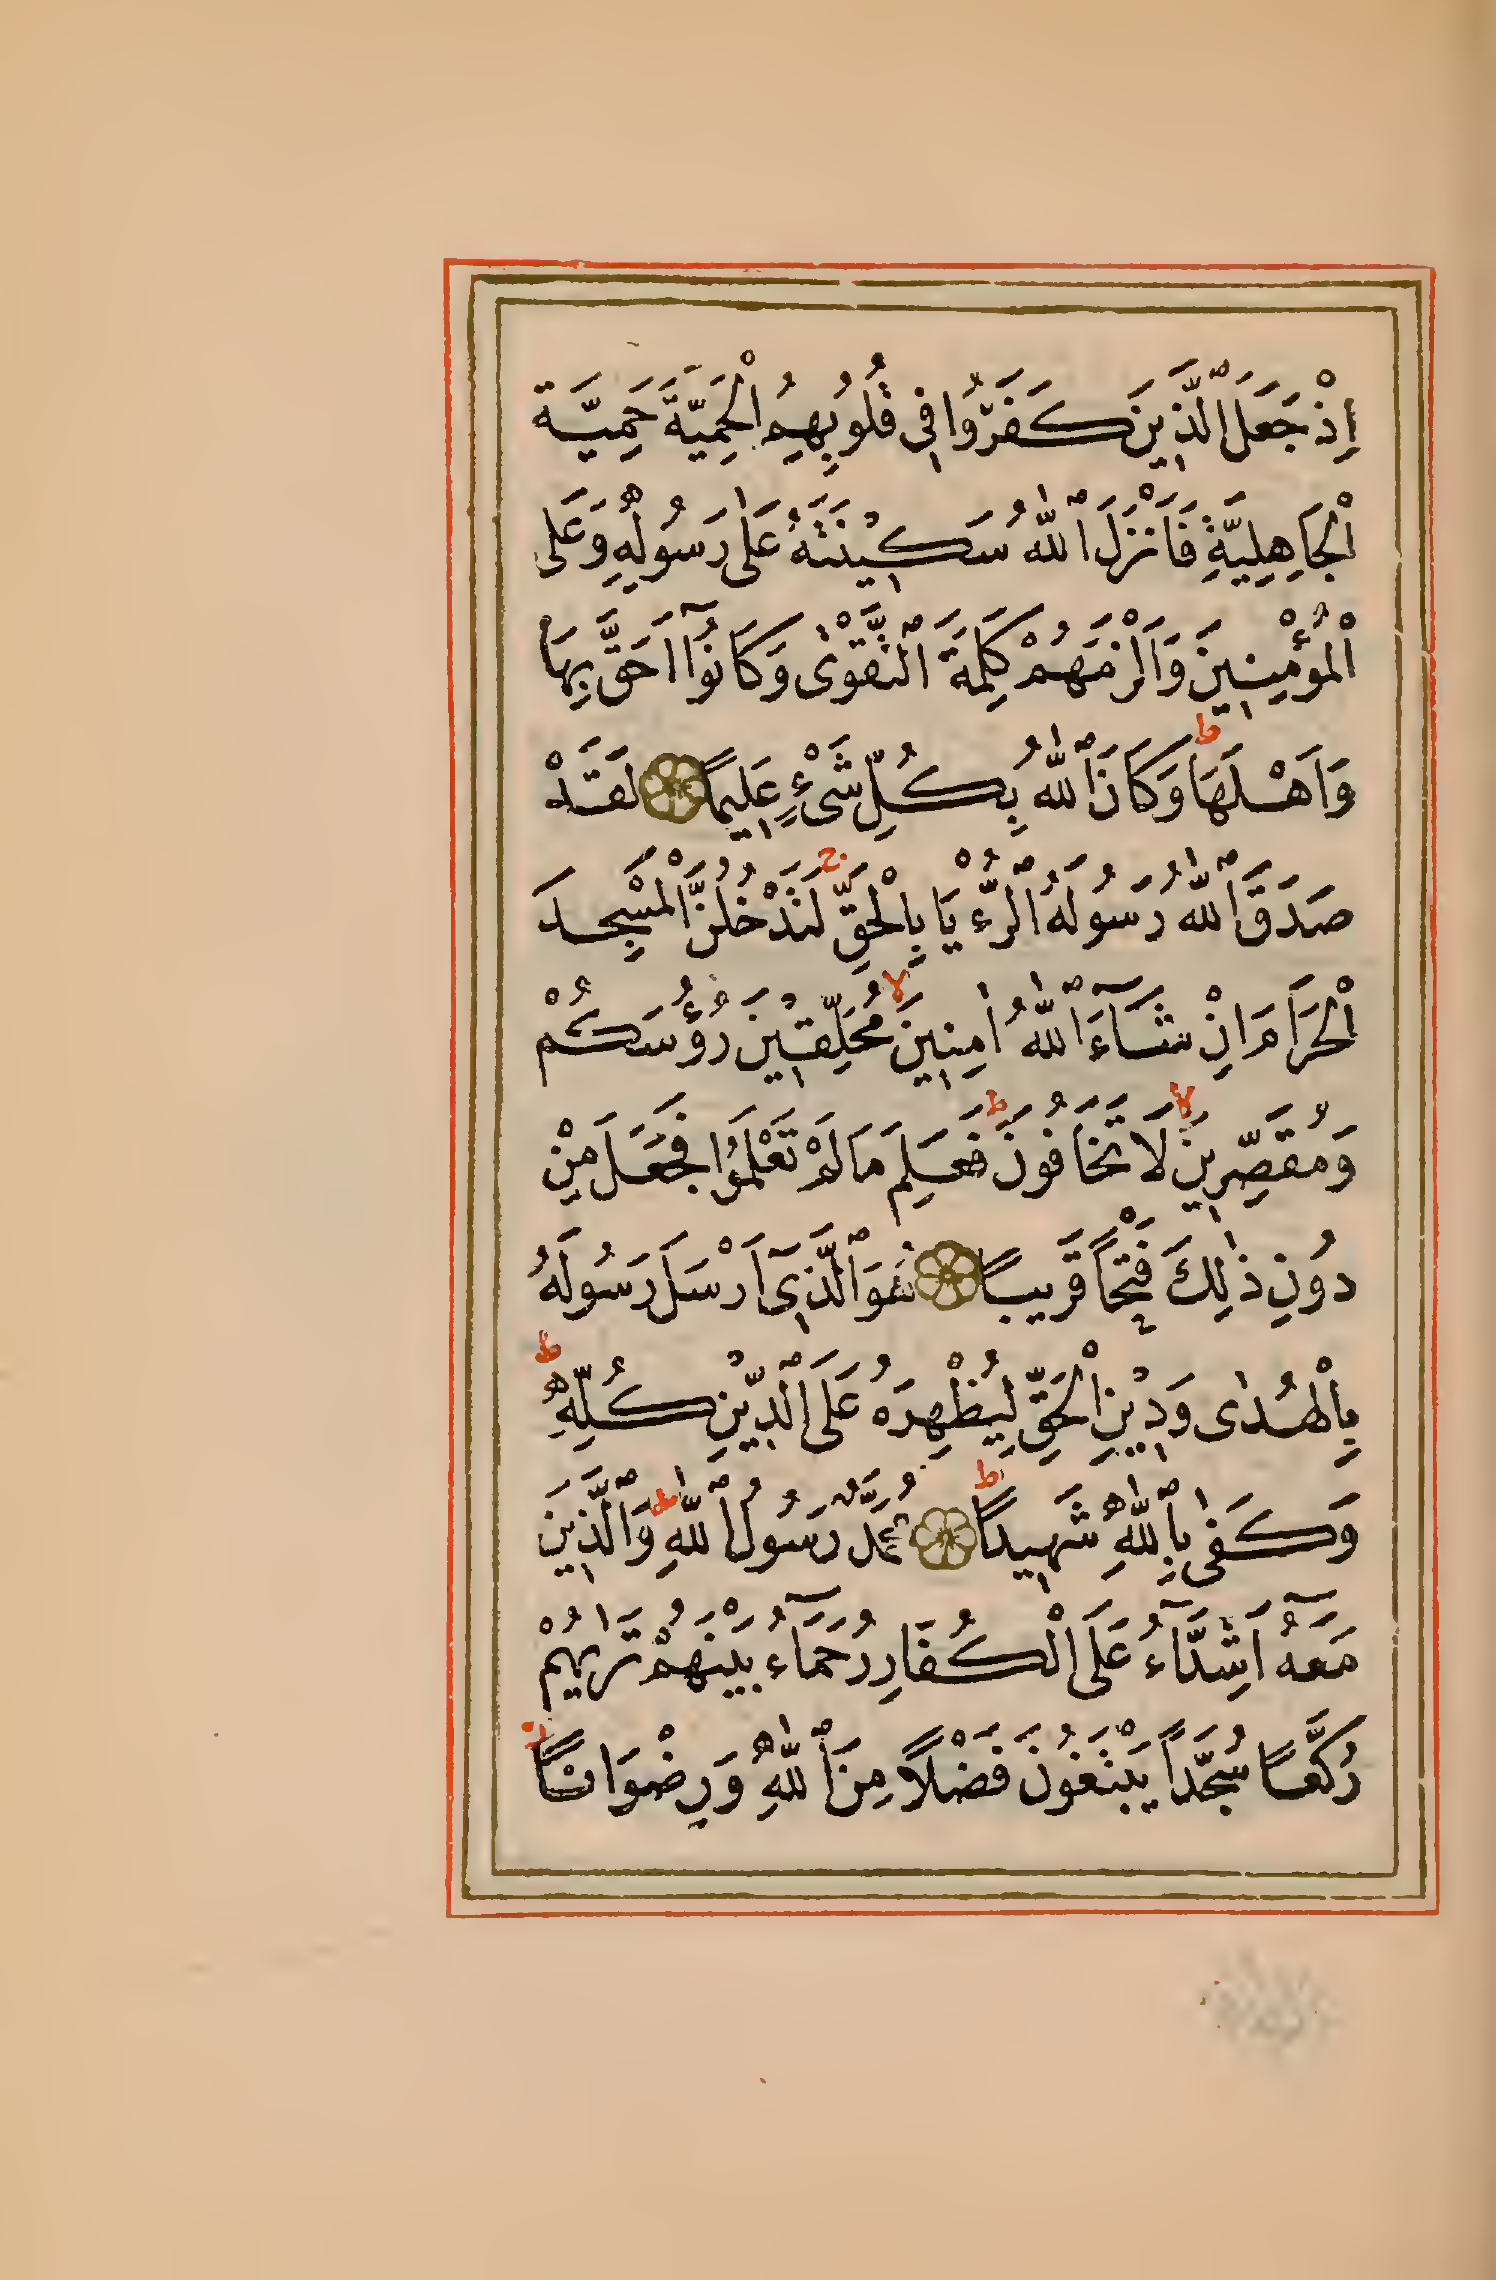 اِذْ جَعَلَ الَّذِينَ كَفَرُوا فِي قُلُوبِهِمُ الْحَمِيَّةَ حَمِيَّةَ
الْجَاهِلِيَّةِ فَاَنْزَلَ اللّٰهُ سَكِينَتَهُ عَلٰى رَسُولِهِ وَعَلَى
الْمُؤْمِنِينَ وَاَلْزَمَهُمْ كَلِمَةَ التَّقْوٰى وَكَانُوٓا اَحَقَّ بِهَا
وَاَهْلَهَا ط وَكَانَ اللّٰهُ بِكُلِّ شَىْءٍ عَلِيمًا لَقَدْ
صَدَقَ اللّٰهُ رَسُولَهُ الرُّءْيَا بِالْحَقِّ ج لَتَدْخُلُنَّ الْمَسْجِدَ
الْحَرَامَ اِنْ شَآءَ اللّٰهُ اٰمِنِينَ لا مُحَلِّقِينَ رُؤُسَكُمْ
وَمُقَصِّرِينَ لا لَا تَخَافُونَ ط فَعَلِمَ مَا لَمْ تَعْلَمُوا فَجَعَلَ مِنْ
دُونِ ذٰلِكَ فَتْحًا قَرِيبًا هُوَ الَّذِىٓ اَرْسَلَ رَسُولَهُ
بِالْهُدٰى وَدِينِ الْحَقِّ لِيُظْهِرَهُ عَلَى الدِّينِ كُلِّهِ ط
وَكَفٰى بِاللّٰهِ شَهِيدًا ط مُحَمَّدٌ رَسُولُ اللّٰهِ ط وَالَّذِينَ
مَعَهُٓ اَشِدَّآءُ عَلَى الْكُفَّارِ رُحَمَآءُ بَيْنَهُمْ تَرٰيهُمْ
رُكَّعًا سُجَّدًا يَبْتَغُونَ فَضْلًا مِنَ اللّٰهِ وَرِضْوَانًا ز